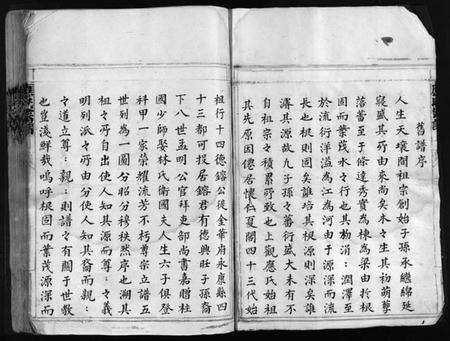 舊譜序
人生天壤間祖宗創始子孫承繼綿延
寖盛其所由來尚矣木之生其初萌蘖
落蕾至于條達秀實為棟為梁由於根
固而葉茂水之行也其初涓涓潤澤至
於流行洋溢為江為河由于源深而流
長也根則固矣誰培其根源則深矣誰
濬其源故九子孫之蕃衍盛大未有不
自祖宗之積累所致也上觀應氏始祖
其先原因僑居懷仁夏閣四十三代始
祖行十四德鎔公後金華府永康縣四
十三都可投居鎔君有德興莊子孫裔
下八世孟明公官拜吏部尚書嘉贈柱
國少師娶林氏衛國夫人生六子俱登
科甲一家榮耀流芳不朽尊宗立譜五
世列為一圖分昭分穆秩然序也溯其
初之所自出使人知其源而尊之之義
明列派之所由分使人知其裔而親親
之道立尊尊親親則譜之有關于世教
也豈淺鮮哉嗚呼根固而葉茂源深而